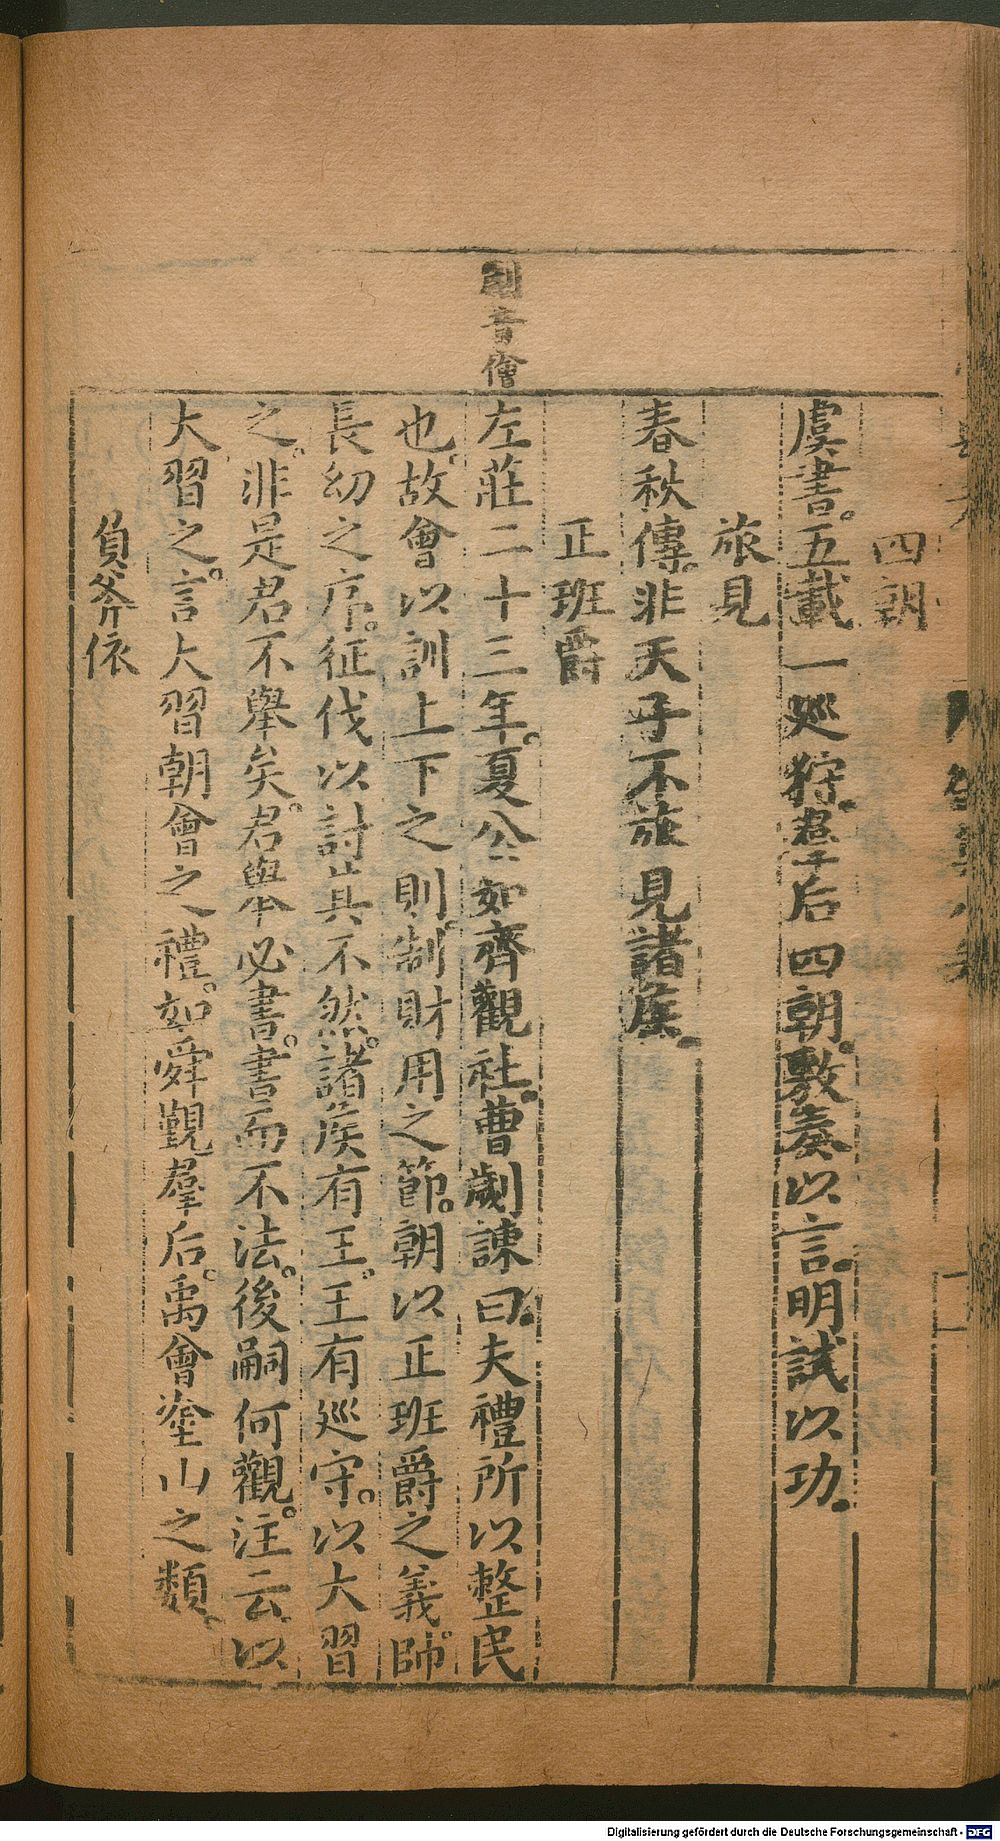 四朝
虞書。五載一廵狩。羣后四朝。敷奏以言。明試以功。
旅見
春秋傳。非天子不旅見諸侯。
正班爵
劌音儈
左莊二十三年。夏公如齊觀社。曹劌諫曰。夫禮所以整民
也。故會以訓上下之則。制財用之節。朝以正班爵之義。帥
長幼之序。征伐以討其不然。諸侯有王。王有廵守。以大習
之。非是君不舉矣。君舉必書。書而不法。後嗣何觀。注云。以
大習之。言大習朝會之禮。如舜覲羣后。禹會塗山之類。
負斧依
Digitalisierung gefördert durch die Deutsche Forschungsgemeinschaft - DFG